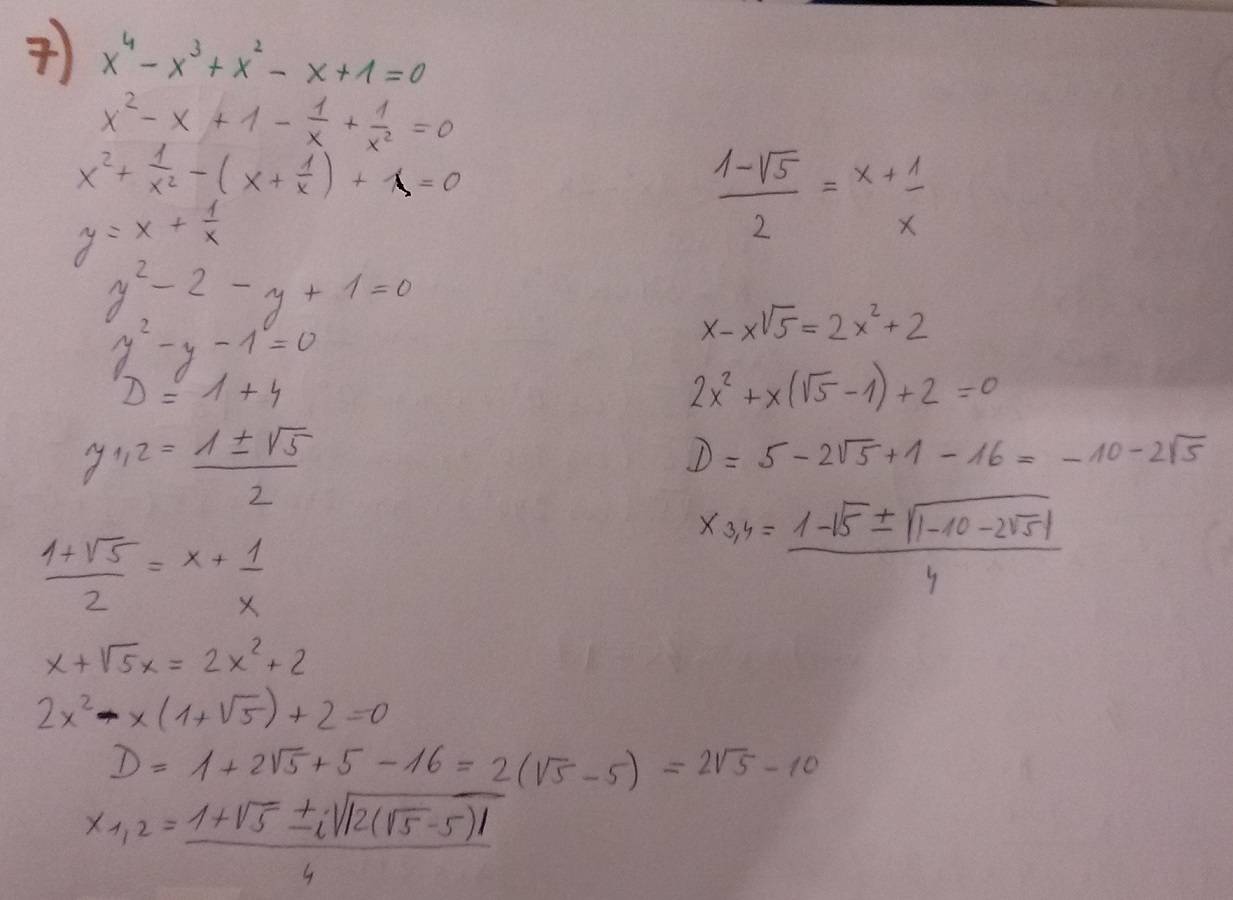 7) x⁴ - x³ + x² - x + 1 = 0
x² - x + 1 - 1/x + 1/x² = 0
x² + 1/x² - (x + 1/x) + 1 = 0
y = x + 1/x
y² - 2 - y + 1 = 0
y² - y - 1 = 0
D = 1 + 4
y1,2 = (1 ± √5)/2
(1+√5)/2 = x + 1/x
x + √5x = 2x² + 2
2x² - x(1+√5) + 2 = 0
D = 1 + 2√5 + 5 - 16 = 2(√5 - 5) = 2√5 - 10
x1,2 = (1+√5 ± i√|2(√5-5)|)/4
(1-√5)/2 = x + 1/x
x - x√5 = 2x² + 2
2x² + x(√5 - 1) + 2 = 0
D = 5 - 2√5 + 1 - 16 = -10 - 2√5
x3,4 = (1-√5 ± √|-10-2√5|)/4